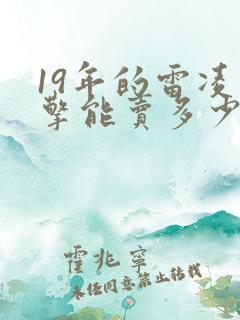 19年的雷凌
擎能卖多少
霍兆寧
未经同意禁止转载